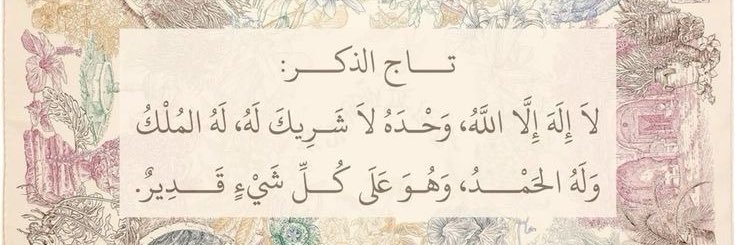 تاج الذكر:
لاَ إِلَهَ إِلَّا اللَّهُ، وَحْدَهُ لاَ شَرِيكَ لَهُ، لَهُ المُلْكُ
وَلَهُ الحَمْدُ، وَهُوَ عَلَى كُلِّ شَيْءٍ قَدِيرٌ.